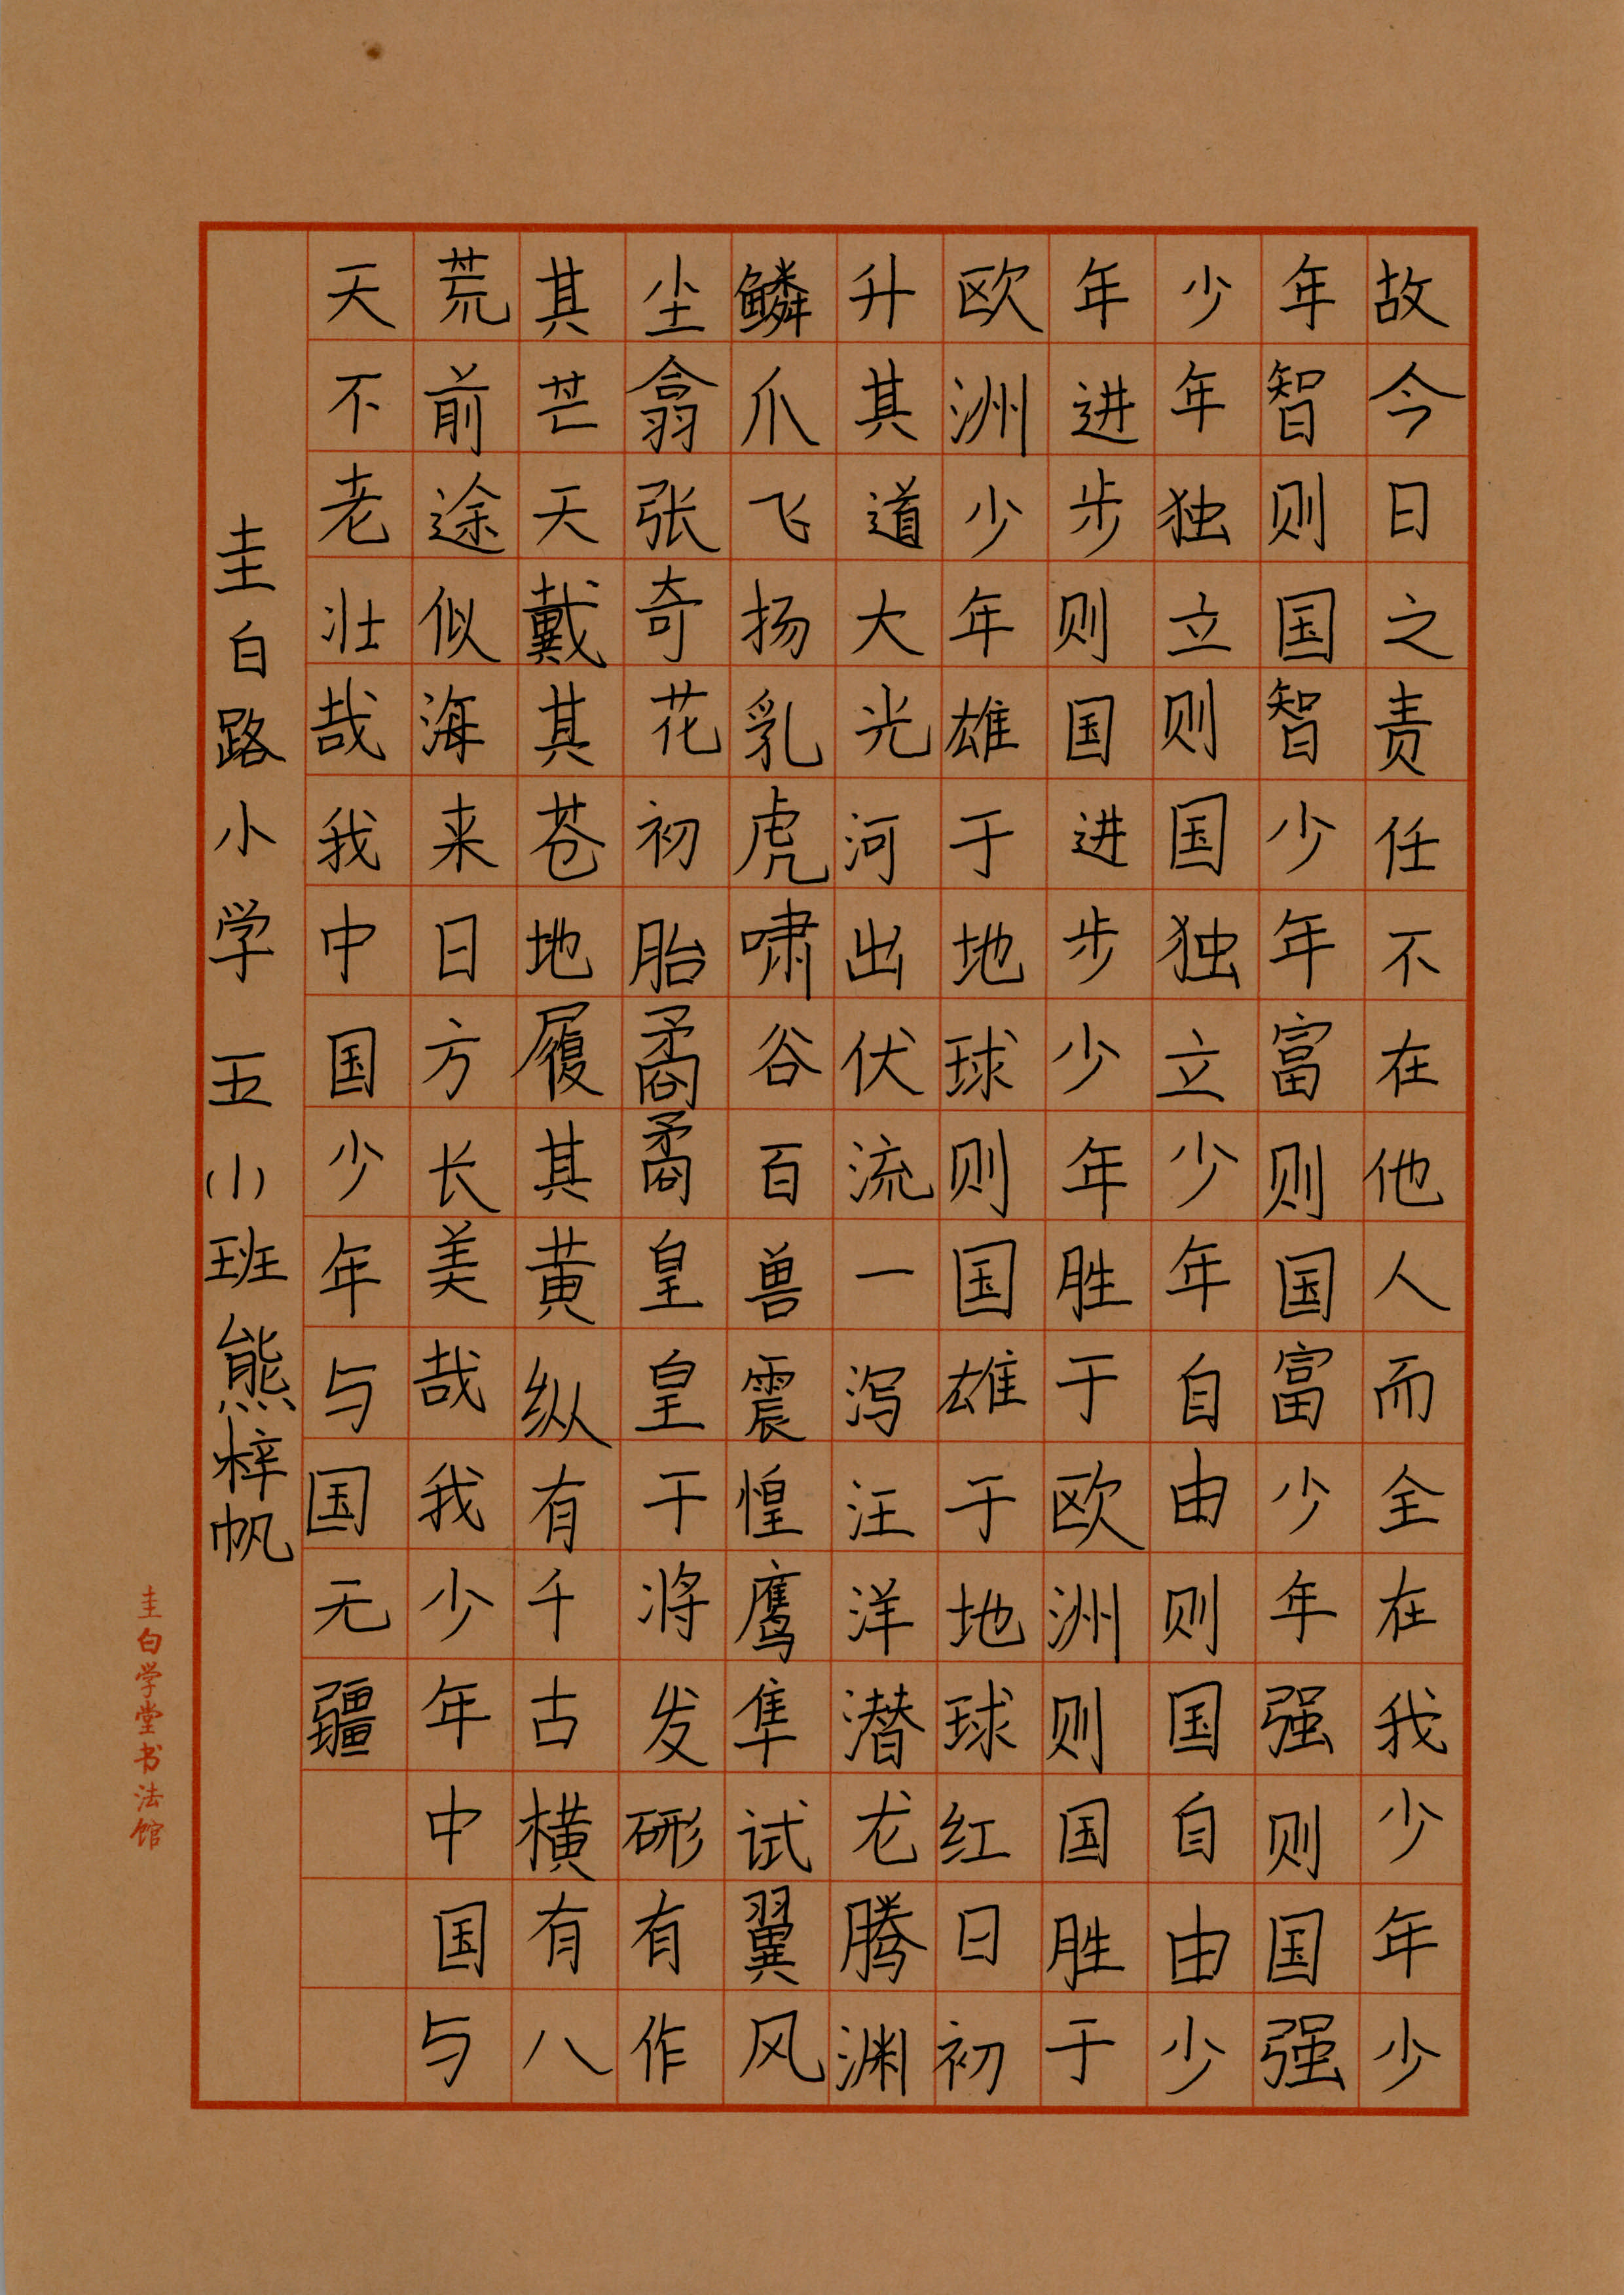 故今日之责任不在他人而全在我少年少
年智则国智少年富则国富少年强则国强
少年独立则国独立少年自由则国自由少
年进步则国进步少年胜于欧洲则国胜于
欧洲少年雄于地球则国雄于地球红日初
升其道大光河出伏流一泻汪洋潜龙腾渊
鳞爪飞扬乳虎啸谷百兽震惶鹰隼试翼风
尘翕张奇花初胎矞矞皇皇干将发硎有作
其芒天戴其苍地履其黄纵有千古横有八
荒前途似海来日方长美哉我少年中国与
天不老壮哉我中国少年与国无疆
圭白路小学 五(1)班 熊梓帆
圭白学堂书法馆